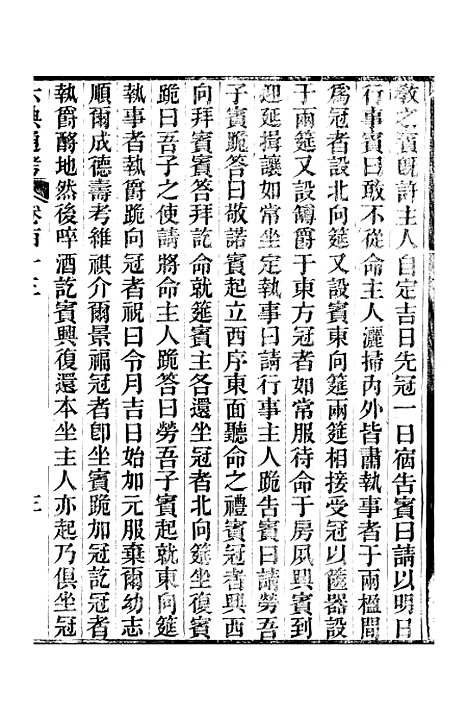 教之賓既許主人自定吉日先冠一日宿告賓曰請以明日
行事賓曰敢不從命主人灑掃內外皆肅執事者于兩楹間
爲冠者設北向筵又設賓東向筵兩筵相接受冠以篋器設
于兩筵又設罇爵于東方冠者如常服待命于房夙興賓到
迎延揖讓如常坐定執事曰請行事主人跪告賓曰請勞吾
子賓跪答曰敬諾賓起立西序東面聽命之禮賓冠者興西
向拜賓賓答拜訖命就筵賓主各還坐冠者北向筵坐復賓
跪曰吾子之使請將命主人跪答曰勞吾子賓起就東向筵
執事者執爵跪向冠者祝曰令月吉日始加元服棄爾幼志
順爾成德壽考維祺介爾景福冠者卽坐賓跪加冠訖冠者
執爵酹地然後啐酒訖賓興復還本坐主人亦起乃俱坐冠
六典通考 卷百十三 三